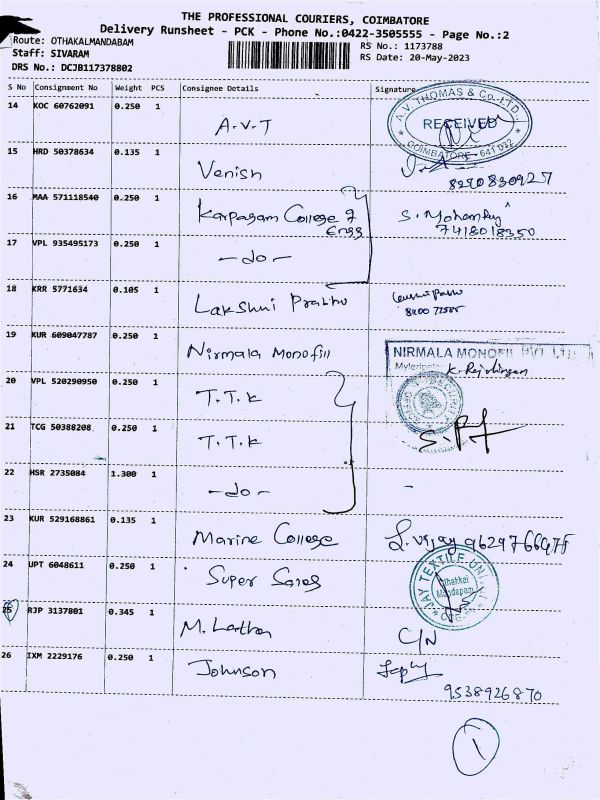 THE PROFESSIONAL COURIERS, COIMBATORE
Delivery Runsheet - PCK - Phone No.:0422-3505555 - Page No.:2
Route: OTHAKALMANDABAM
RS No.: 1173788
Staff: SIVARAM
RS Date: 20-May-2023
DRS No.: DCJB117378802
S No Consignment No Weight PCS Consignee Details Signature
14 KOC 60762091 0.250 1 A.V.T
A.V. THOMAS & Co. LTD.
RECEIVED
COIMBATORE - 641 032
15 HRD 50378634 0.135 1 Venish
16 MAA 571118540 0.250 1 Karpagam College of Engg
7418018350
17 VPL 935495173 0.250 1 -do-
18 KRR 5771634 0.105 1 Lakshmi Prabhu
19 KUR 609047787 0.250 1 Nirmala Monofill
NIRMALA MONOFIL PVT LTD
20 VPL 520290950 0.250 1 T.T.K
21 TCG 50388208 0.250 1 T.T.K
22 HSR 2735084 1.300 1 -do- -
23 KUR 529168861 0.135 1 Marine College
24 UPT 6048611 0.250 1 Super Sares
JAY TEXTILE UNIT
25 RJP 3137801 0.345 1 C/N
26 IXM 2229176 0.250 1 Johnson
9538926870
1